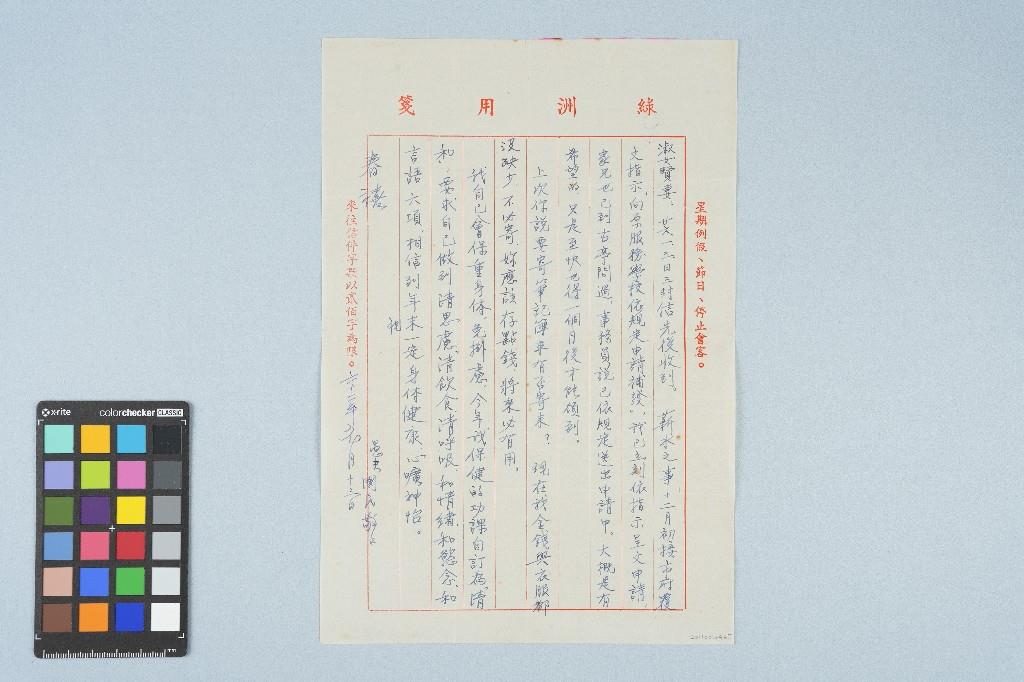 綠洲用箋
星期例假、節日、停止會客。
淑賢妻：廿八、一三日三封信先後收到。 薪水之事，十二月初接市府覆
文指示，向原服務學校依規定申請補發，我已立刻依指示呈文申請，
家兄也已到古亭問過，事務員說已依規定送出申請中。大概是有
希望的，只是至快也得一個月後才能領到。
上次你說要寄筆記簿來有否寄來？ 現在我金錢與衣服都
沒缺少，不必寄，妳應該存點錢，將來必有用，
我自己會保重身体，免掛慮。今年我保健的功課自訂為：清
和，要求自己做到清思慮、清飲食、清呼吸、和情緒、和慾念、和
言語六項，相信到年末一定身体健康、心曠神怡。
祝
春禧
愚夫 國民 敬上
六十二年 月十三日
來往信件字數以貳佰字為限。